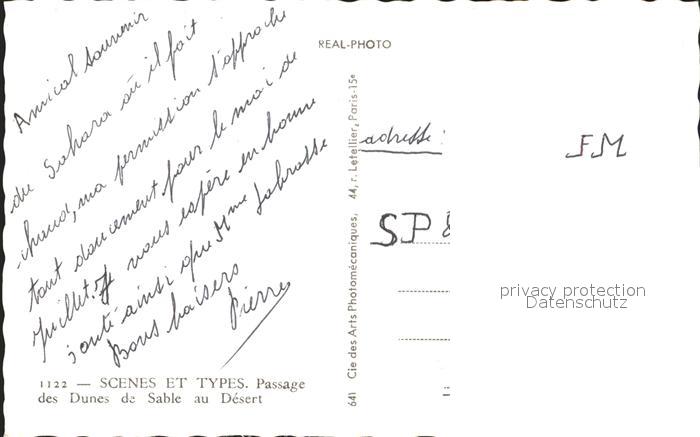 Amical souvenir
du Sahara où il fait
chaud, ma permission s'approche
tout doucement pour le moi de
juillet. Je vous espère en bonne
santé ainsi que Mme Labrosse
Bons baisers
Pierre
1122 — SCENES ET TYPES. Passage
des Dunes de Sable au Désert
REAL-PHOTO
641 Cie des Arts Photomécaniques, 44, r. Letellier, Paris-15e
adresse :
FM
SP 8
privacy protection
Datenschutz